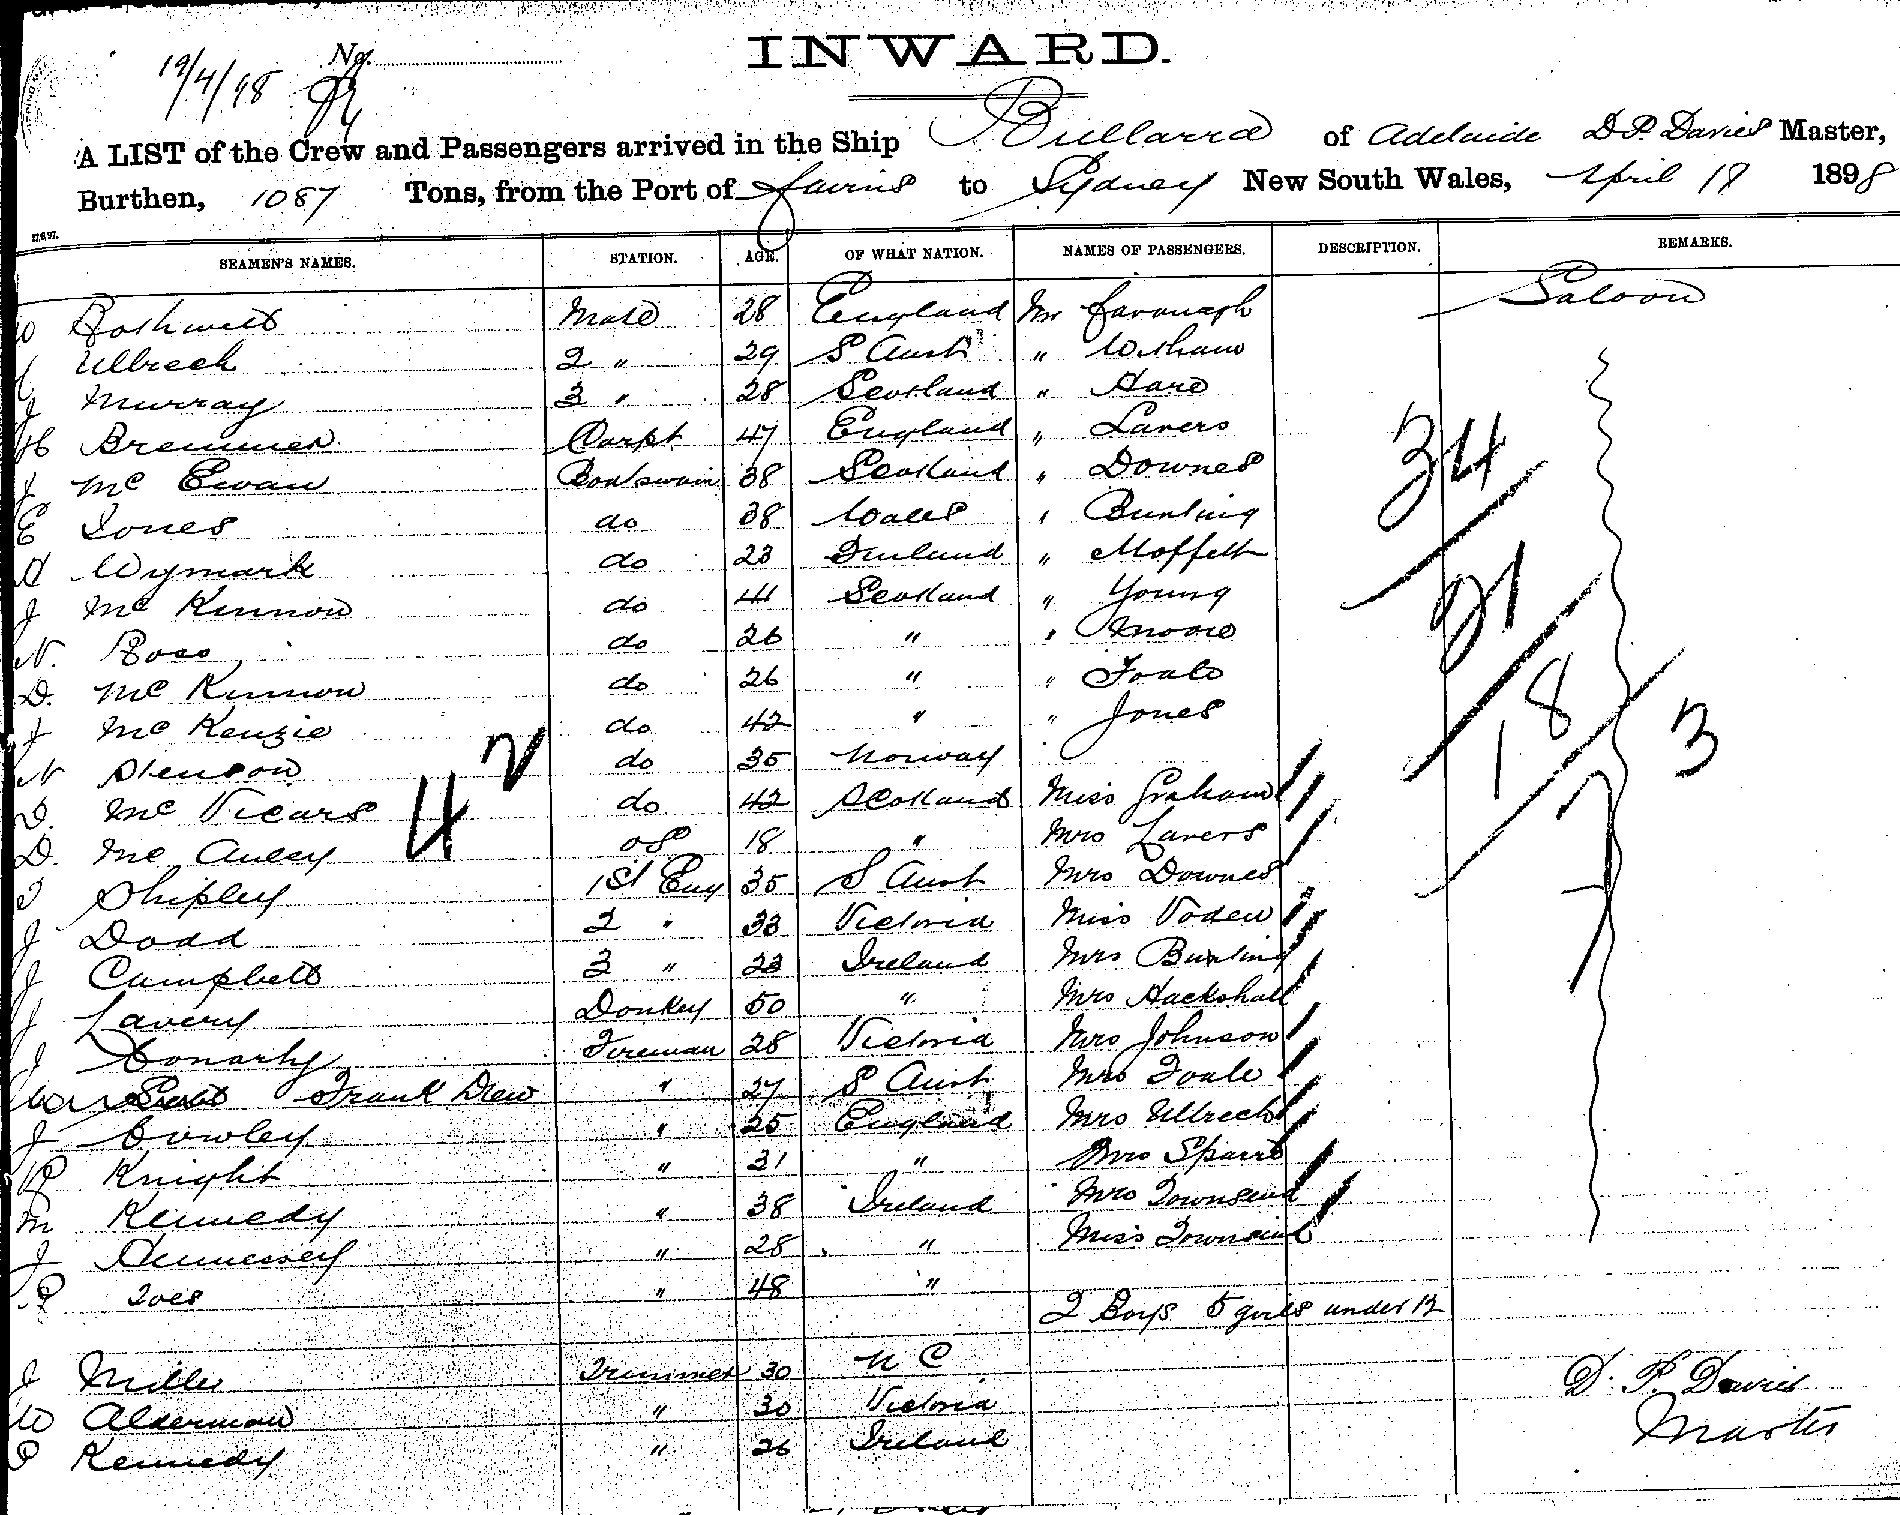 19/4/98 No.
INWARD.
A LIST of the Crew and Passengers arrived in the Ship Bullarra of Adelaide D P. Davies Master,
Burthen, 1087 Tons, from the Port of Cairns to Sydney New South Wales, April 19 1898
SEAMEN'S NAMES. STATION. AGE. OF WHAT NATION. NAMES OF PASSENGERS. DESCRIPTION. REMARKS.
W Rothwell Mate 28 England Mr Cavanagh Saloon
Ulbrech 2 " 29 S Aust " Witham
J Murray 3 " 28 Scotland " Hare
H Bremner Carpt 47 England " Lavers
J Mc Ewan Boatswain 38 Scotland " Downes 34
E Jones do 38 Wales " Bunting
A Wymark do 23 Finland " Moffett
J Mc Kinnon do 41 Scotland " Young 21
N. Ross do 26 " " Moore
D. Mc Kinnon do 26 " " Foale 18
J Mc Kenzie do 42 " " Jones 3
N Stenson do 35 Norway
D. Mc Vicars 42 do 42 Scotland Miss Graham 7
D. Mc Auley OS 18 " Mrs Lavers
Shipley 1st Eng 35 S Aust Mrs Downes
J Dodd 2 " 33 Victoria Miss Voden
J Campbell 3 " 23 Ireland Mrs Bunting
J Lavery Donkey 50 " Mrs Hackshall
J Conarty Fireman 28 Victoria Mrs Johnson
Frank Drew " 27 S Aust Mrs Foale
J Cowley " 25 England Mrs Ulbrech
R Knight " 31 " Mrs Sparrs
M Kennedy " 38 Ireland Mrs Townsend
J Hennessey " 28 " Miss Townsend
P. Toes " 48 "
2 Boys 5 girls under 12
J Miller Trimmer 30 N C
W Alderman " 30 Victoria
P Kennedy " 26 Ireland
D. P. Davies
Master